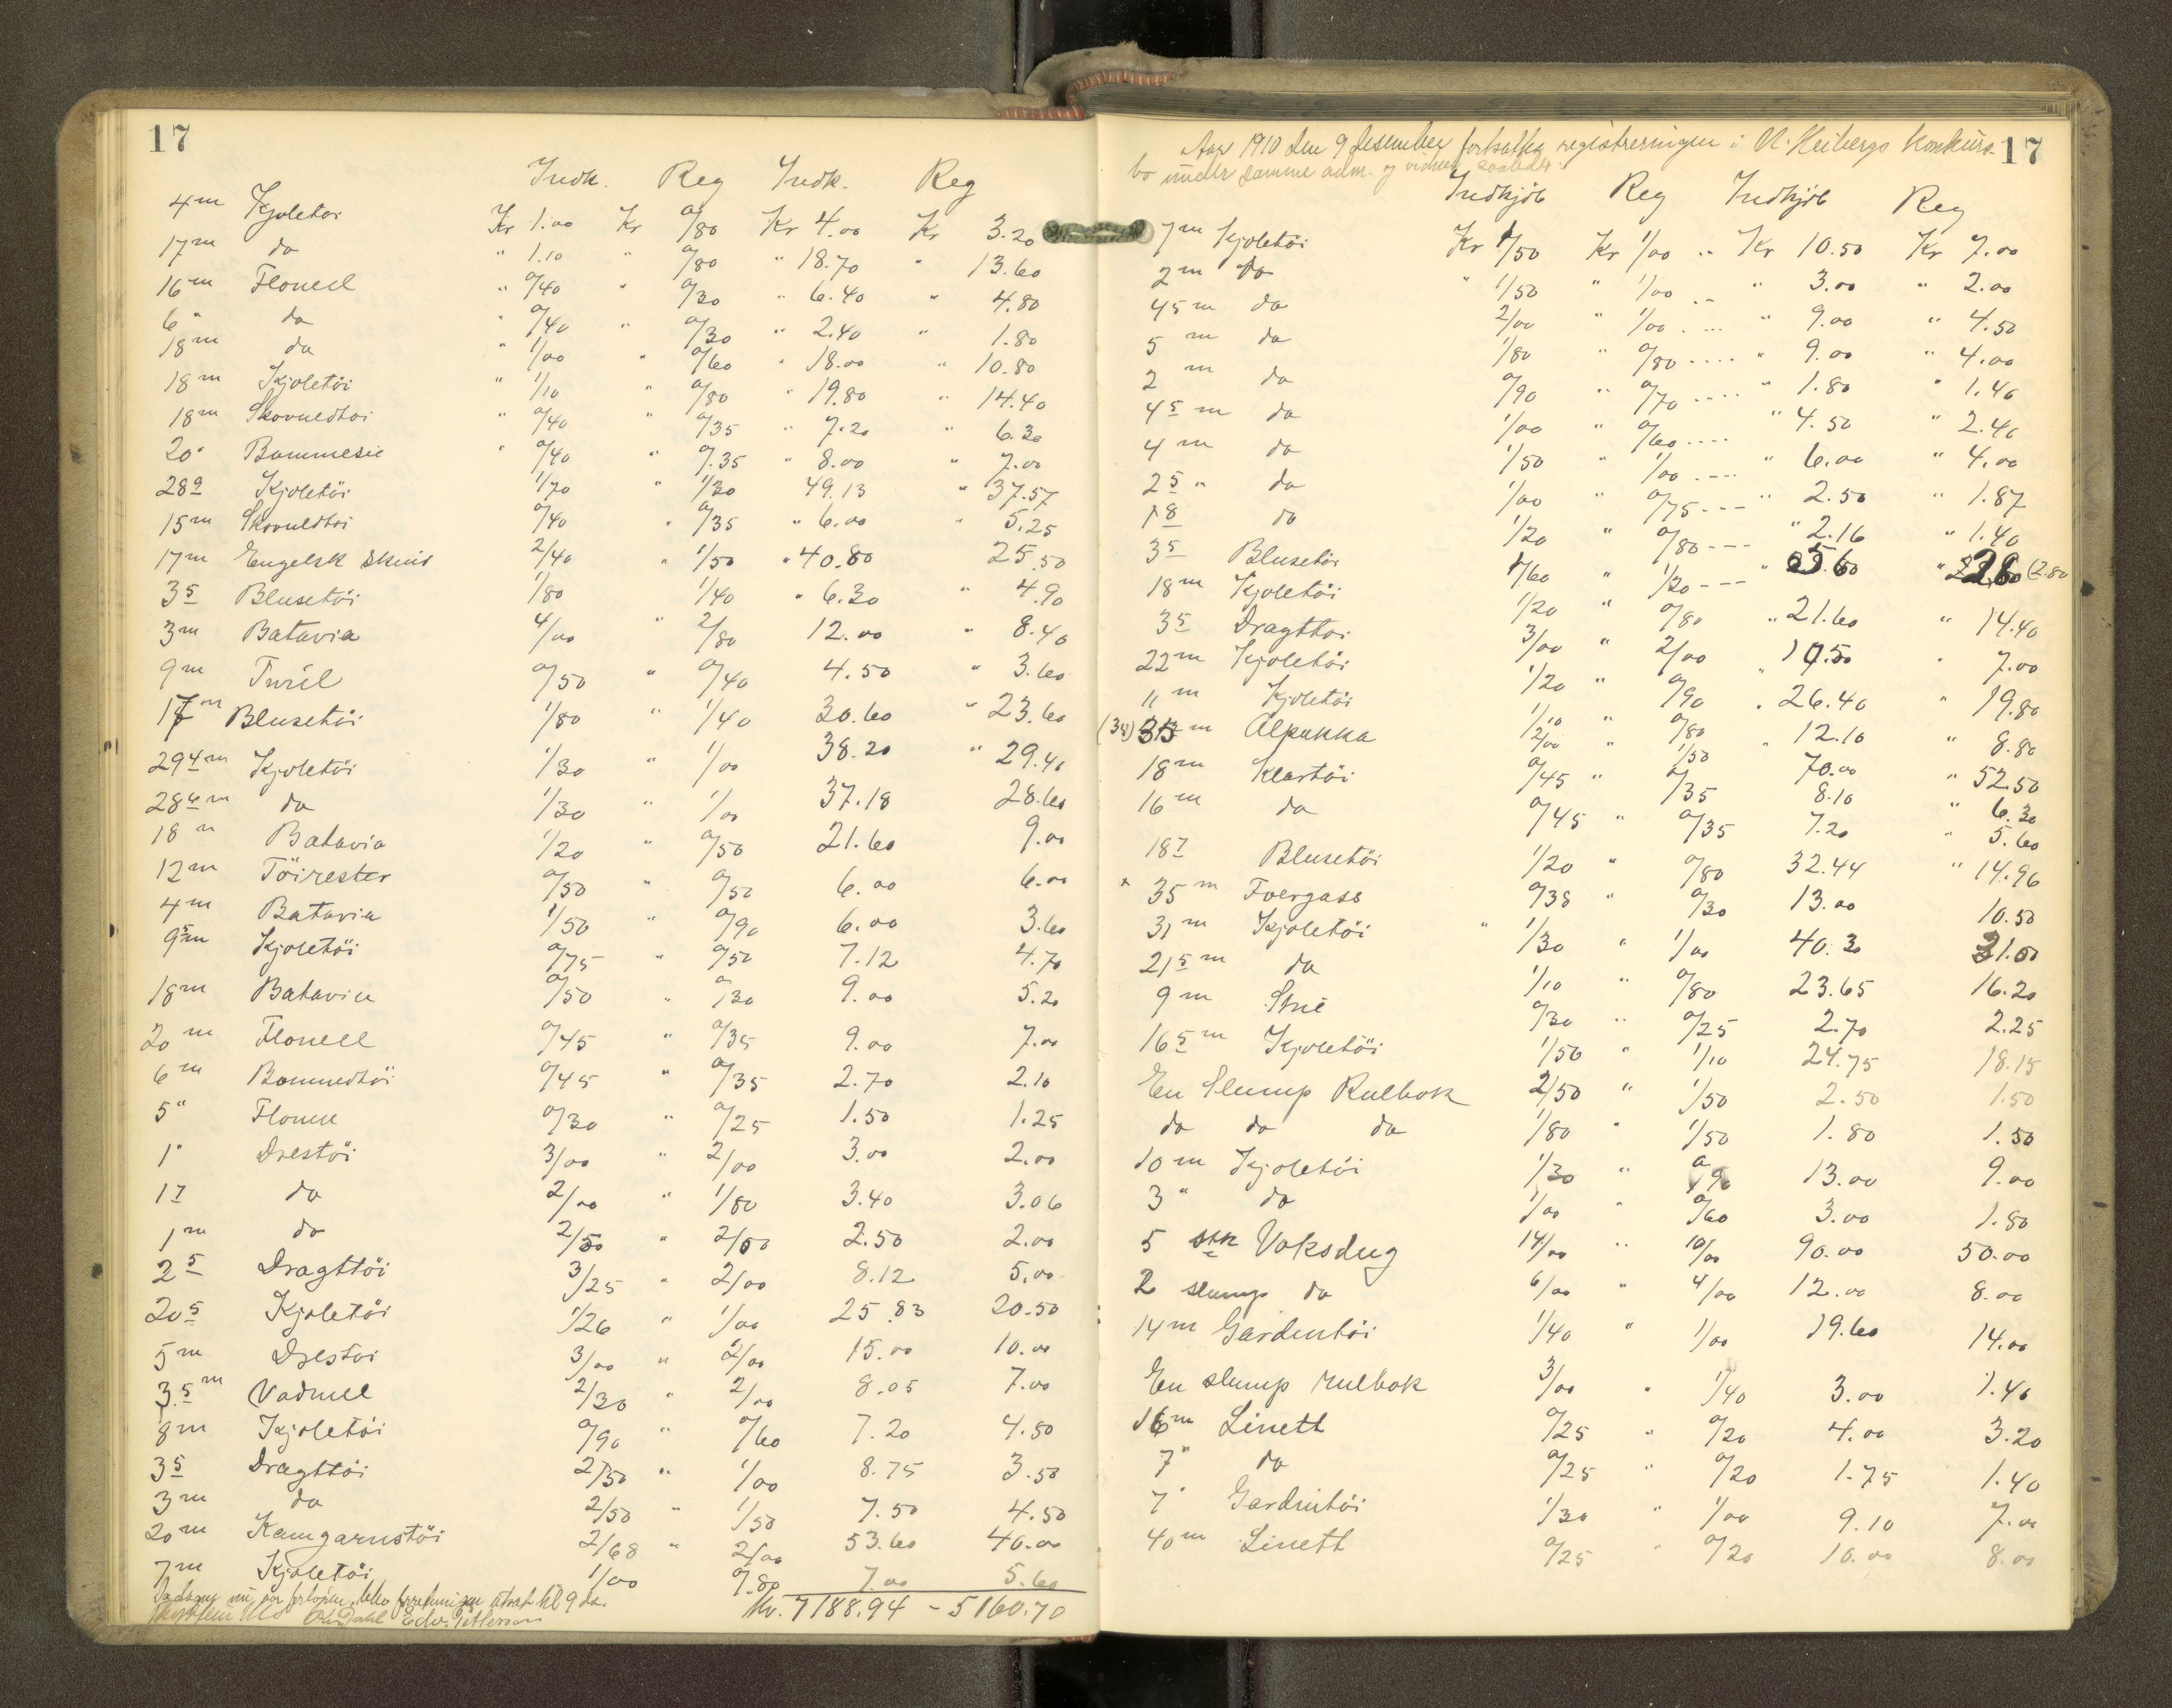 17
Indk. Reg Indk. Reg
4m Kjoletøi Kr 1.00 Kr 0/80 Kr 4.00 Kr 3.20
17m do " 1.10 " 0/80 " 18.70 " 13.60
16m Flonell " 0/40 " 0/30 " 6.40 " 4.80
6" do " 0/40 " 0/30 " 2.40 " 1.80
18m do " 1/00 " 0/60 " 18.00 " 10.80
18m Kjoletöi " 1/10 " 0/80 " 19.80 " 14.40
18m " 0/40 " 0/35 " 7.20 " 6.30
20" Bommesie " 0/40 " 0.35 " 8.00 " 7.00
289 Kjoletöi 1/70 " 1/30 49.13 " 37.57
15m 0/40 " 0/35 " 6.00 " 5.25
17m Engelsk Skind 2/40 " 1/50 " 40.80 25.50
35 Blusetöi 1/80 1/40 " 6.30 " 4.90
3m Batavia 4/00 " 2/80 12.00 " 8.40
9m 0/50 " 0/40 4.50 " 3.60
17m Blusetöi 1/80 " 1/40 30.60 " 23.60
294m Kjoletöi 1/30 " 1/00 38.20 " 29.40
286m do 1/30 " 1/00 37.18 28.60
18m Batavia 1/20 " 0/50 21.60 9.00
12m Töirester 0/50 " 0/50 6.00 6.00
4m Batavia 1/50 " 0/90 6.00 3.60
95m Kjoletöi 0/75 " 0/50 7.12 4.70
18m Batavia 0/50 " 0/30 9.00 5.20
20m Flonell 0/45 " 0/35 9.00 7.00
6m Bommedtöi 0/45 " 0/35 2.70 2.10
5" Flonell 0/30 " 0/25 1.50 1.25
1" Drestöi 3/00 " 2/00 3.00 2.00
17 do 2/00 " 1/80 3.40 3.06
1m do 2/50 " 2/00 2.50 2.00
25 Dragttöi 3/25 " 2/00 8.12 5.00
205 Kjoletöi 1/26 " 1/00 25.83 20.50
5m Drestoi 3/00 " 2/00 15.00 10.00
3.5m Vadmel 2/30 " 2/00 8.05 7.00
8m Kjoletöi 0/90 " 0/60 7.20 4.80
35 Dragttöi 2/50 " 1/00 8.75 3.50
3m do 2/50 " 1/50 7.50 4.50
20m Kamgarnstöi 2/68 " 2/00 53.60 40.00
7m Kjoletöi 1/00 0.80 7.00 5.60
Kr. 7188.94 - 5160.70
Da dagen nu var forløpen, blev forretningen utsat kl 9 da.
Edv. Pettersen
Aar 1910 den 9 desember fortsattes registreringen i N. Heibergs konkurs- 17
bo under samme adm. og vidner saaledes:
Indkjöb Reg Indkjöb Reg
7m Kjoletöi Kr 1/50 Kr 1/00 .. Kr 10.50 Kr 7.00
2m do " 1/50 " 1/00 .. " 3.00 " 2.00
45m do 2/00 " 1/00 ... " 9.00 " 4.50
5m do 1/80 " 0/80 .... " 9.00 " 4.00
2m do 0/90 " 0/70 .... " 1.80 " 1.40
45m do 1/00 " 0/60 .... " 4.50 " 2.40
4m do 1/50 " 1/00 .... " 6.00 " 4.00
25" do 1/00 " 0/75 --- " 2.50 " 1.87
18 do 1/20 " 0/80 --- " 2.16 " 1.40
35 Blusetöi 1/60 " 1/20 --- " 5.60 " (2.80
18m Kjoletöi 1/20 " 0/80 " 21.60 " 14.40
35 Dragttoi 3/00 " 2/00 " 10.50 " 7.00
22m Kjoletöi 1/20 " 0/90 " 26.40 " 19.80
11m Kjoletöi 1/10 " 0/80 " 12.10 " 8.80
(35) 35m Alpakka 2/00 " 1/50 70.00 " 52.50
18m Klartöi 0/45 " 0/35 8.10 " 6.30
16m do 0/45 " 0/35 7.20 " 5.60
187 Blusetöi 1/20 " 0/80 32.44 " 14.96
x 35m Foergase 0/38 " 0/30 13.00 10.50
31m Kjoletöi " 1/30 " 1/00 40.30 31.00
215m do 1/10 " 0/80 23.65 16.20
9m Strie 0/30 " 0/25 2.70 2.25
165m Kjoletöi 1/50 " 1/10 24.75 18.15
En Slump Rulbok 2/50 " 1/50 2.50 1.50
do do do 1/80 " 1/50 1.80 1.50
10m Kjoletöi 1/30 " 0/90 13.00 9.00
3" do 1/00 " 0/60 3.00 1.80
5 stk Voksdug 14/00 " 10/00 90.00 50.00
2 slump do 6/00 " 4/00 12.00 8.00
14m Gardintöi 1/40 " 1/00 19.60 14.00
En slump rulbok 3/00 " 1/40 3.00 1.40
16m Linett 0/25 " 0/20 4.00 3.20
7" do 0/25 " 0/20 1.75 1.40
7" Gardintöi 1/30 " 1/00 9.10 7.00
40m Linett 0/25 " 0/20 10.00 8.00